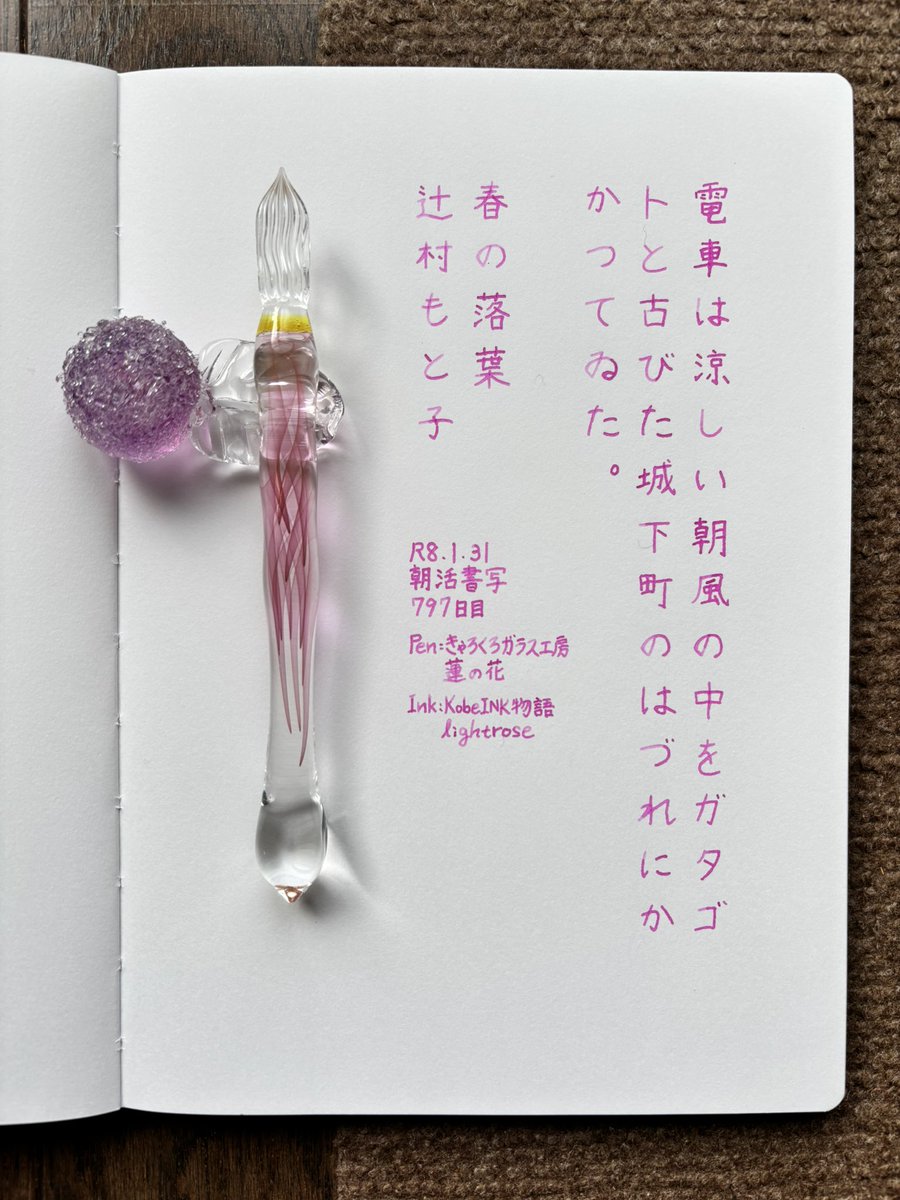 電車は涼しい朝風の中をガタゴ
トと古びた城下町のはづれにか
かつてゐた。
春の落葉
辻村もと子
R8.1.31
朝活書写
797日目
Pen:きゃろくろガラス工房
蓮の花
Ink:KobeINK物語
lightrose